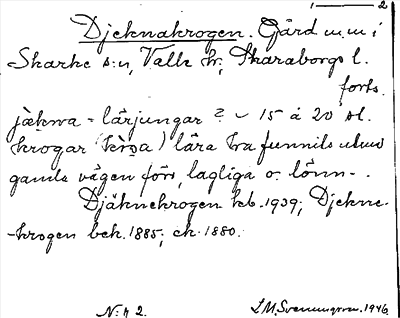 1 — 2
Djeknakrogen. Gård m.m i
Skarke s:n, Valle hr, Skaraborgs l.
forts.
jäkna - lärjungar? ~ 15 à 20 st.
krogar ( ) lära ha funnits utmed
gamla vägen förr, lagliga o. lönn-.
Djäknekrogen kb. 1939; Djekne-
-krogen bek. 1885; ek. 1880.
N:r 2. S.M. Svenungsson. 1946.